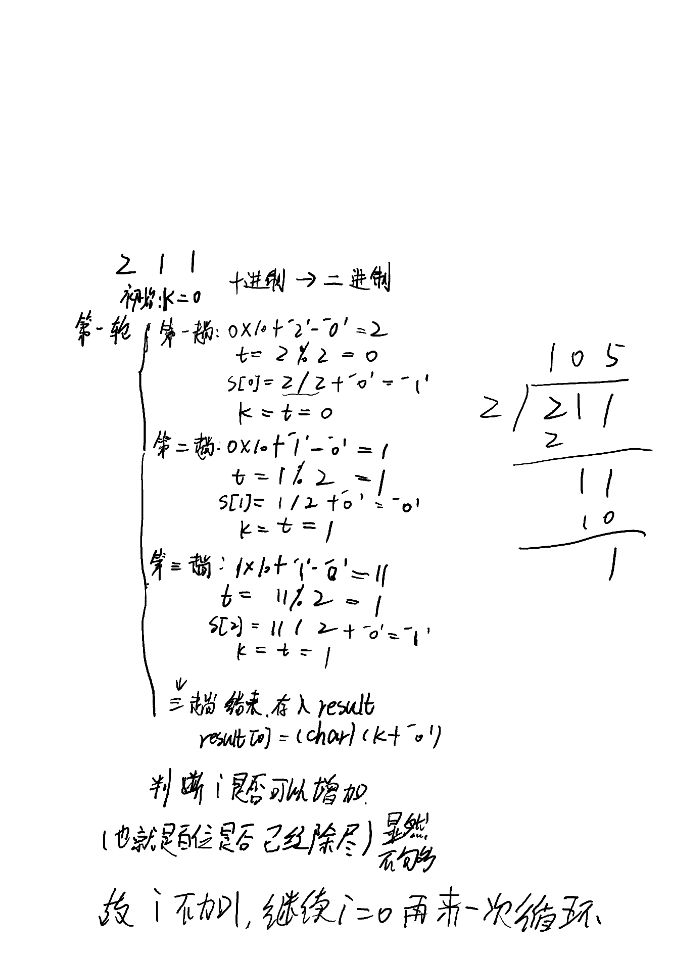 2 1 1
十进制 → 二进制
初始:K=0
第一轮
第一趟: 0×10+'2'-'0'=2
t= 2%2=0
S[0]= 2/2+'0'='1'
K=t=0
第二趟: 0×10+'1'-'0'=1
t=1%2=1
S[1]= 1/2+'0'='0'
K=t=1
第三趟: 1×10+'1'-'0'=11
t= 11%2=1
S[2]= 11/2+'0'='1'
K=t=1
三趟结束,存入result
result[0]=(char)(K+'0')
判断i是否可以增加.
(也就是百位是否已经除尽)显然
不可以
故i不加1,继续i=0再来一次循环.
105
2 211
2
11
10
1